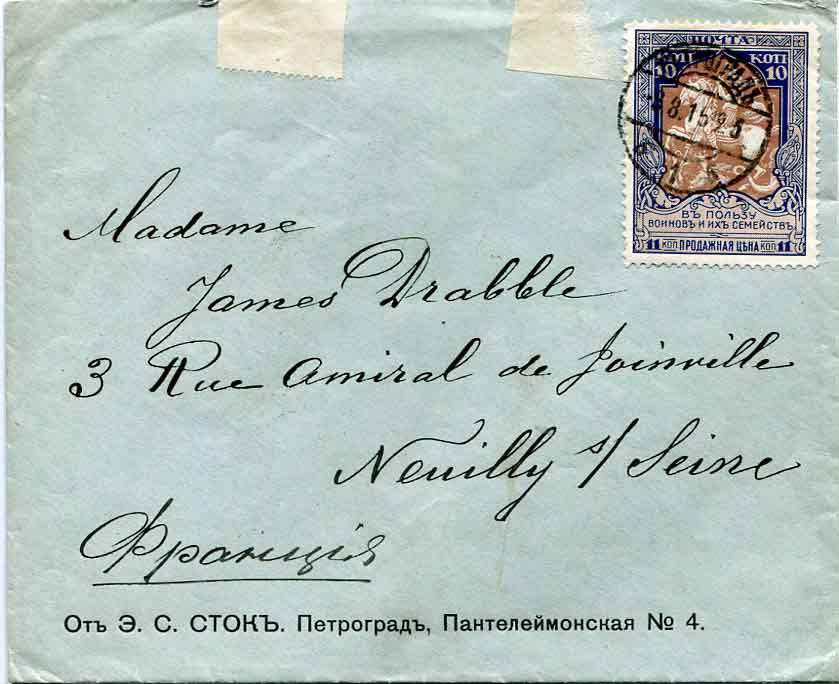 ПОЧТА
КОП
10 10
8.15
ВЪ ПОЛЬЗУ
ВОИНОВЪ И ИХЪ СЕМЕЙСТВЪ
11 КОП. ПРОДАЖНАЯ ЦѢНА КОП. 11
Madame
James Drabble
3 Rue Amiral de Joinville
Neuilly s/ Seine
Франція
Отъ Э. С. СТОКЪ. Петроградъ, Пантелеймонская № 4.